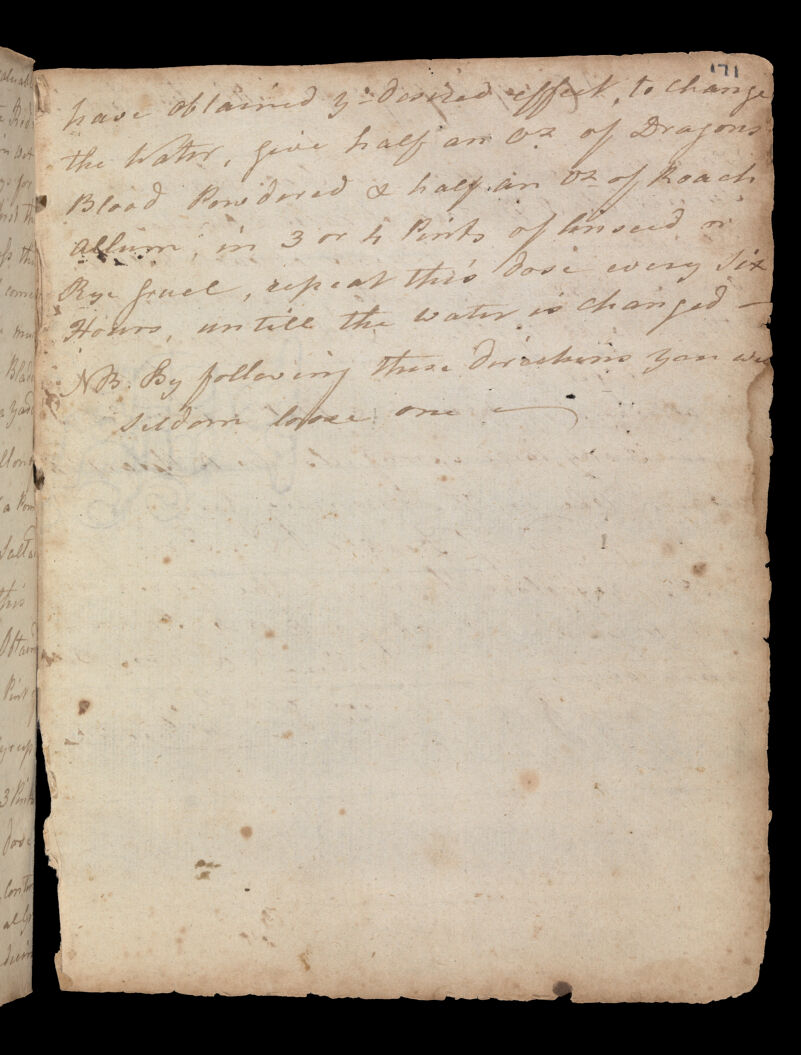 171
have obtained ye desired effect, to change
the Water, give half an Oz of Dragons
Blood Powdered & half an Oz of Roach
Allum, in 3 or 4 Pints of linseed or
Rye gruel, repeat this dose every Six
Hours, untill the water is changed —
NB. By following these directions you
seldom loose one